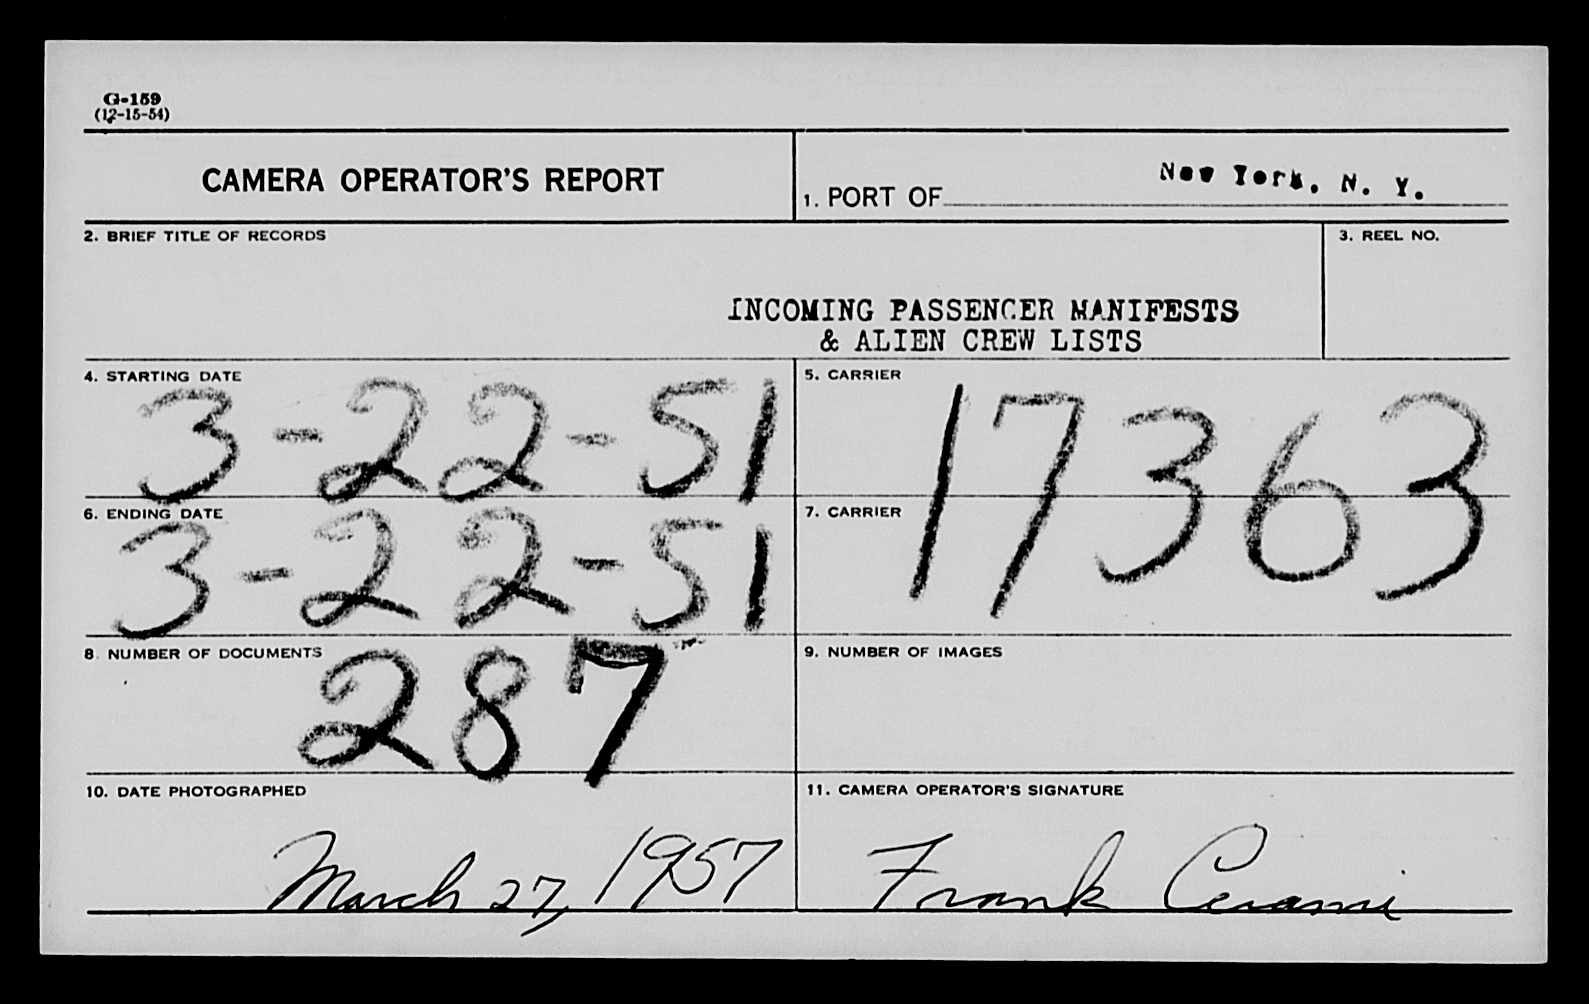 G-159
(12-15-54)
CAMERA OPERATOR'S REPORT
1. PORT OF New York, N. Y.
2. BRIEF TITLE OF RECORDS
3. REEL NO.
INCOMING PASSENGER MANIFESTS
& ALIEN CREW LISTS
4. STARTING DATE
3-22-51
5. CARRIER
17363
6. ENDING DATE
3-22-51
7. CARRIER
8. NUMBER OF DOCUMENTS
287
9. NUMBER OF IMAGES
10. DATE PHOTOGRAPHED
March 27, 1957
11. CAMERA OPERATOR'S SIGNATURE
Frank Cerami